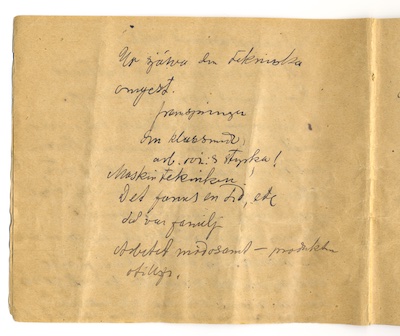 Ur själva den tekniska
omgest.
framspringer
en klassmed.
arb. rör:s styrka!
Maskintekniken
Det fanns en tid, etc
det var familj
Arbetet mödosamt — produkten
otillfr.